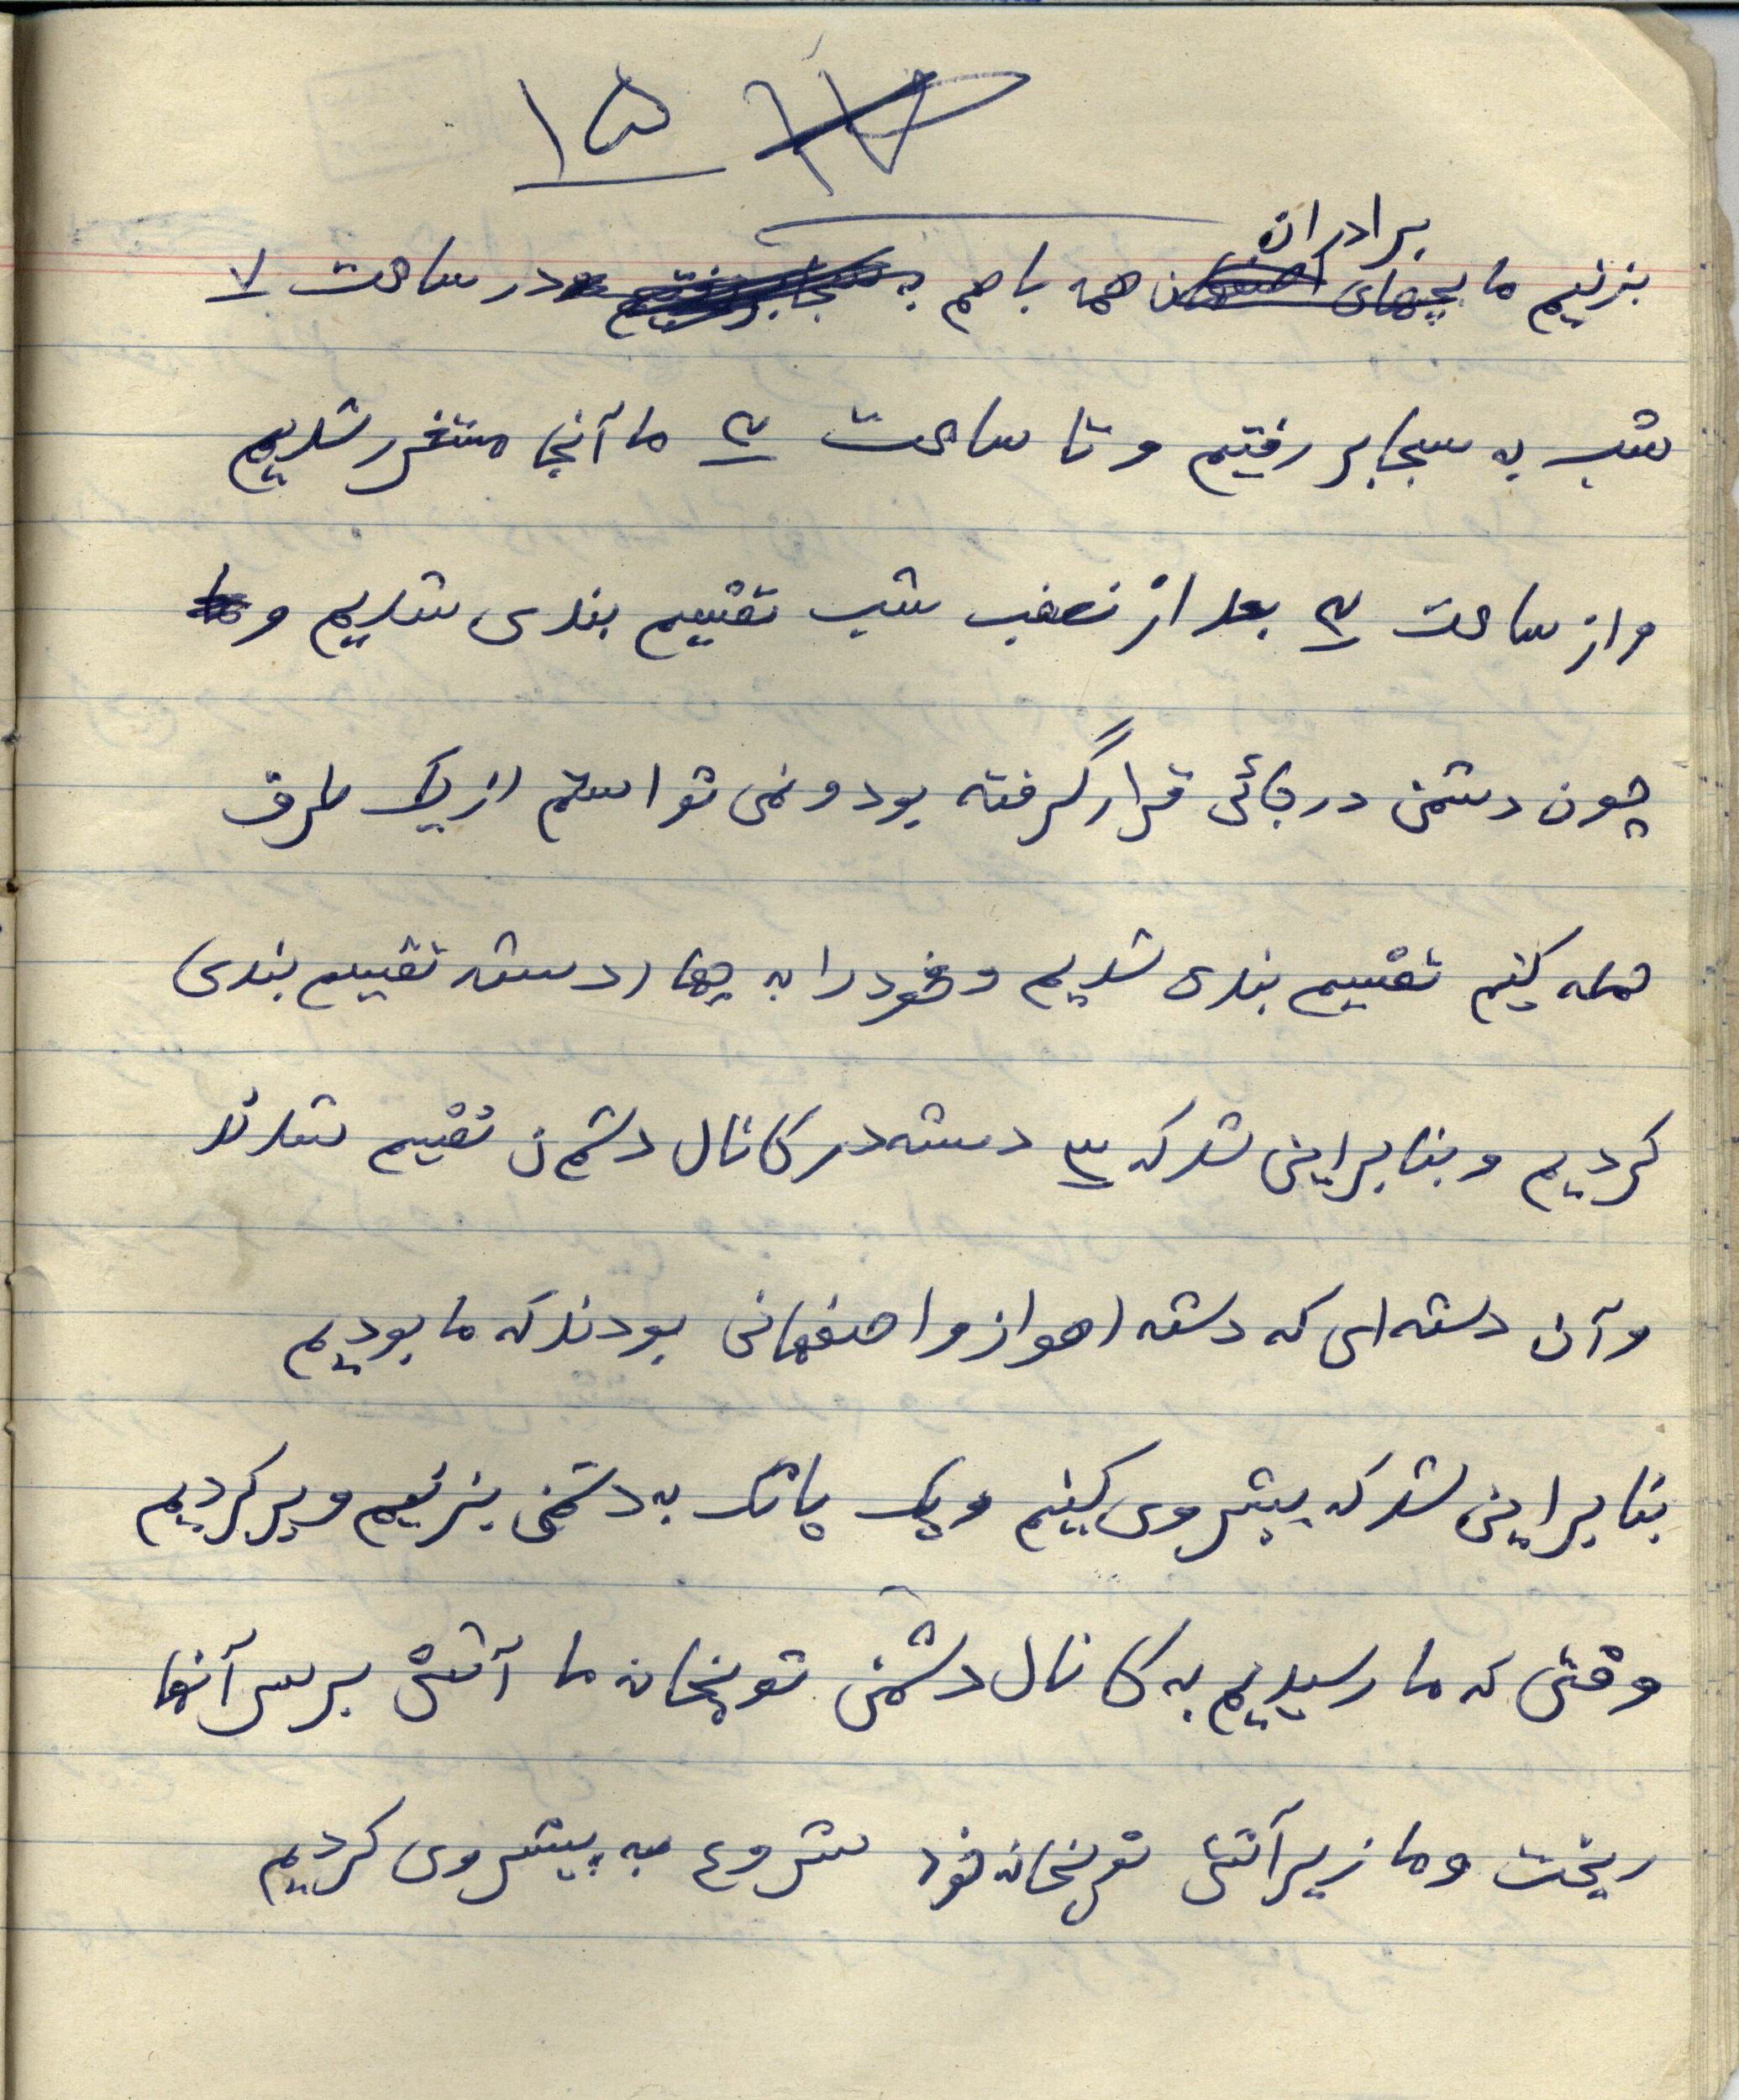 ۱۵
برادران
بزنیم ما بچههای همه با هم در ساعت ۷
شب به سبجابر رفتیم و تا ساعت ۲ ما آنجا متغرر شدیم
و از ساعت ۲ بعد از نصف شب تقسیم بندی شدیم و
چون دشمن در جائی قرار گرفته بود و نمی تواستم از یک طرف
حمله کنیم تقسیم بندی شدیم و خود را به چهار دسته تقسیم بندی
کردیم و بنا براین شد که ۳ دسته در کانال دشمن تقسیم شدند
و آن دسته ای که دسته اهواز و اصفهانی بودند که ما بودیم
بنا براین شد که پیشروی کنیم و یک پاتک به دشمن بزنیم و بر کردیم
وقتی که ما رسیدیم به کانال دشمن توپخانه ما آتش بر سر آنها
ریخت و ما زیر آتش توپخانه خود شروع به پیشروی کردیم